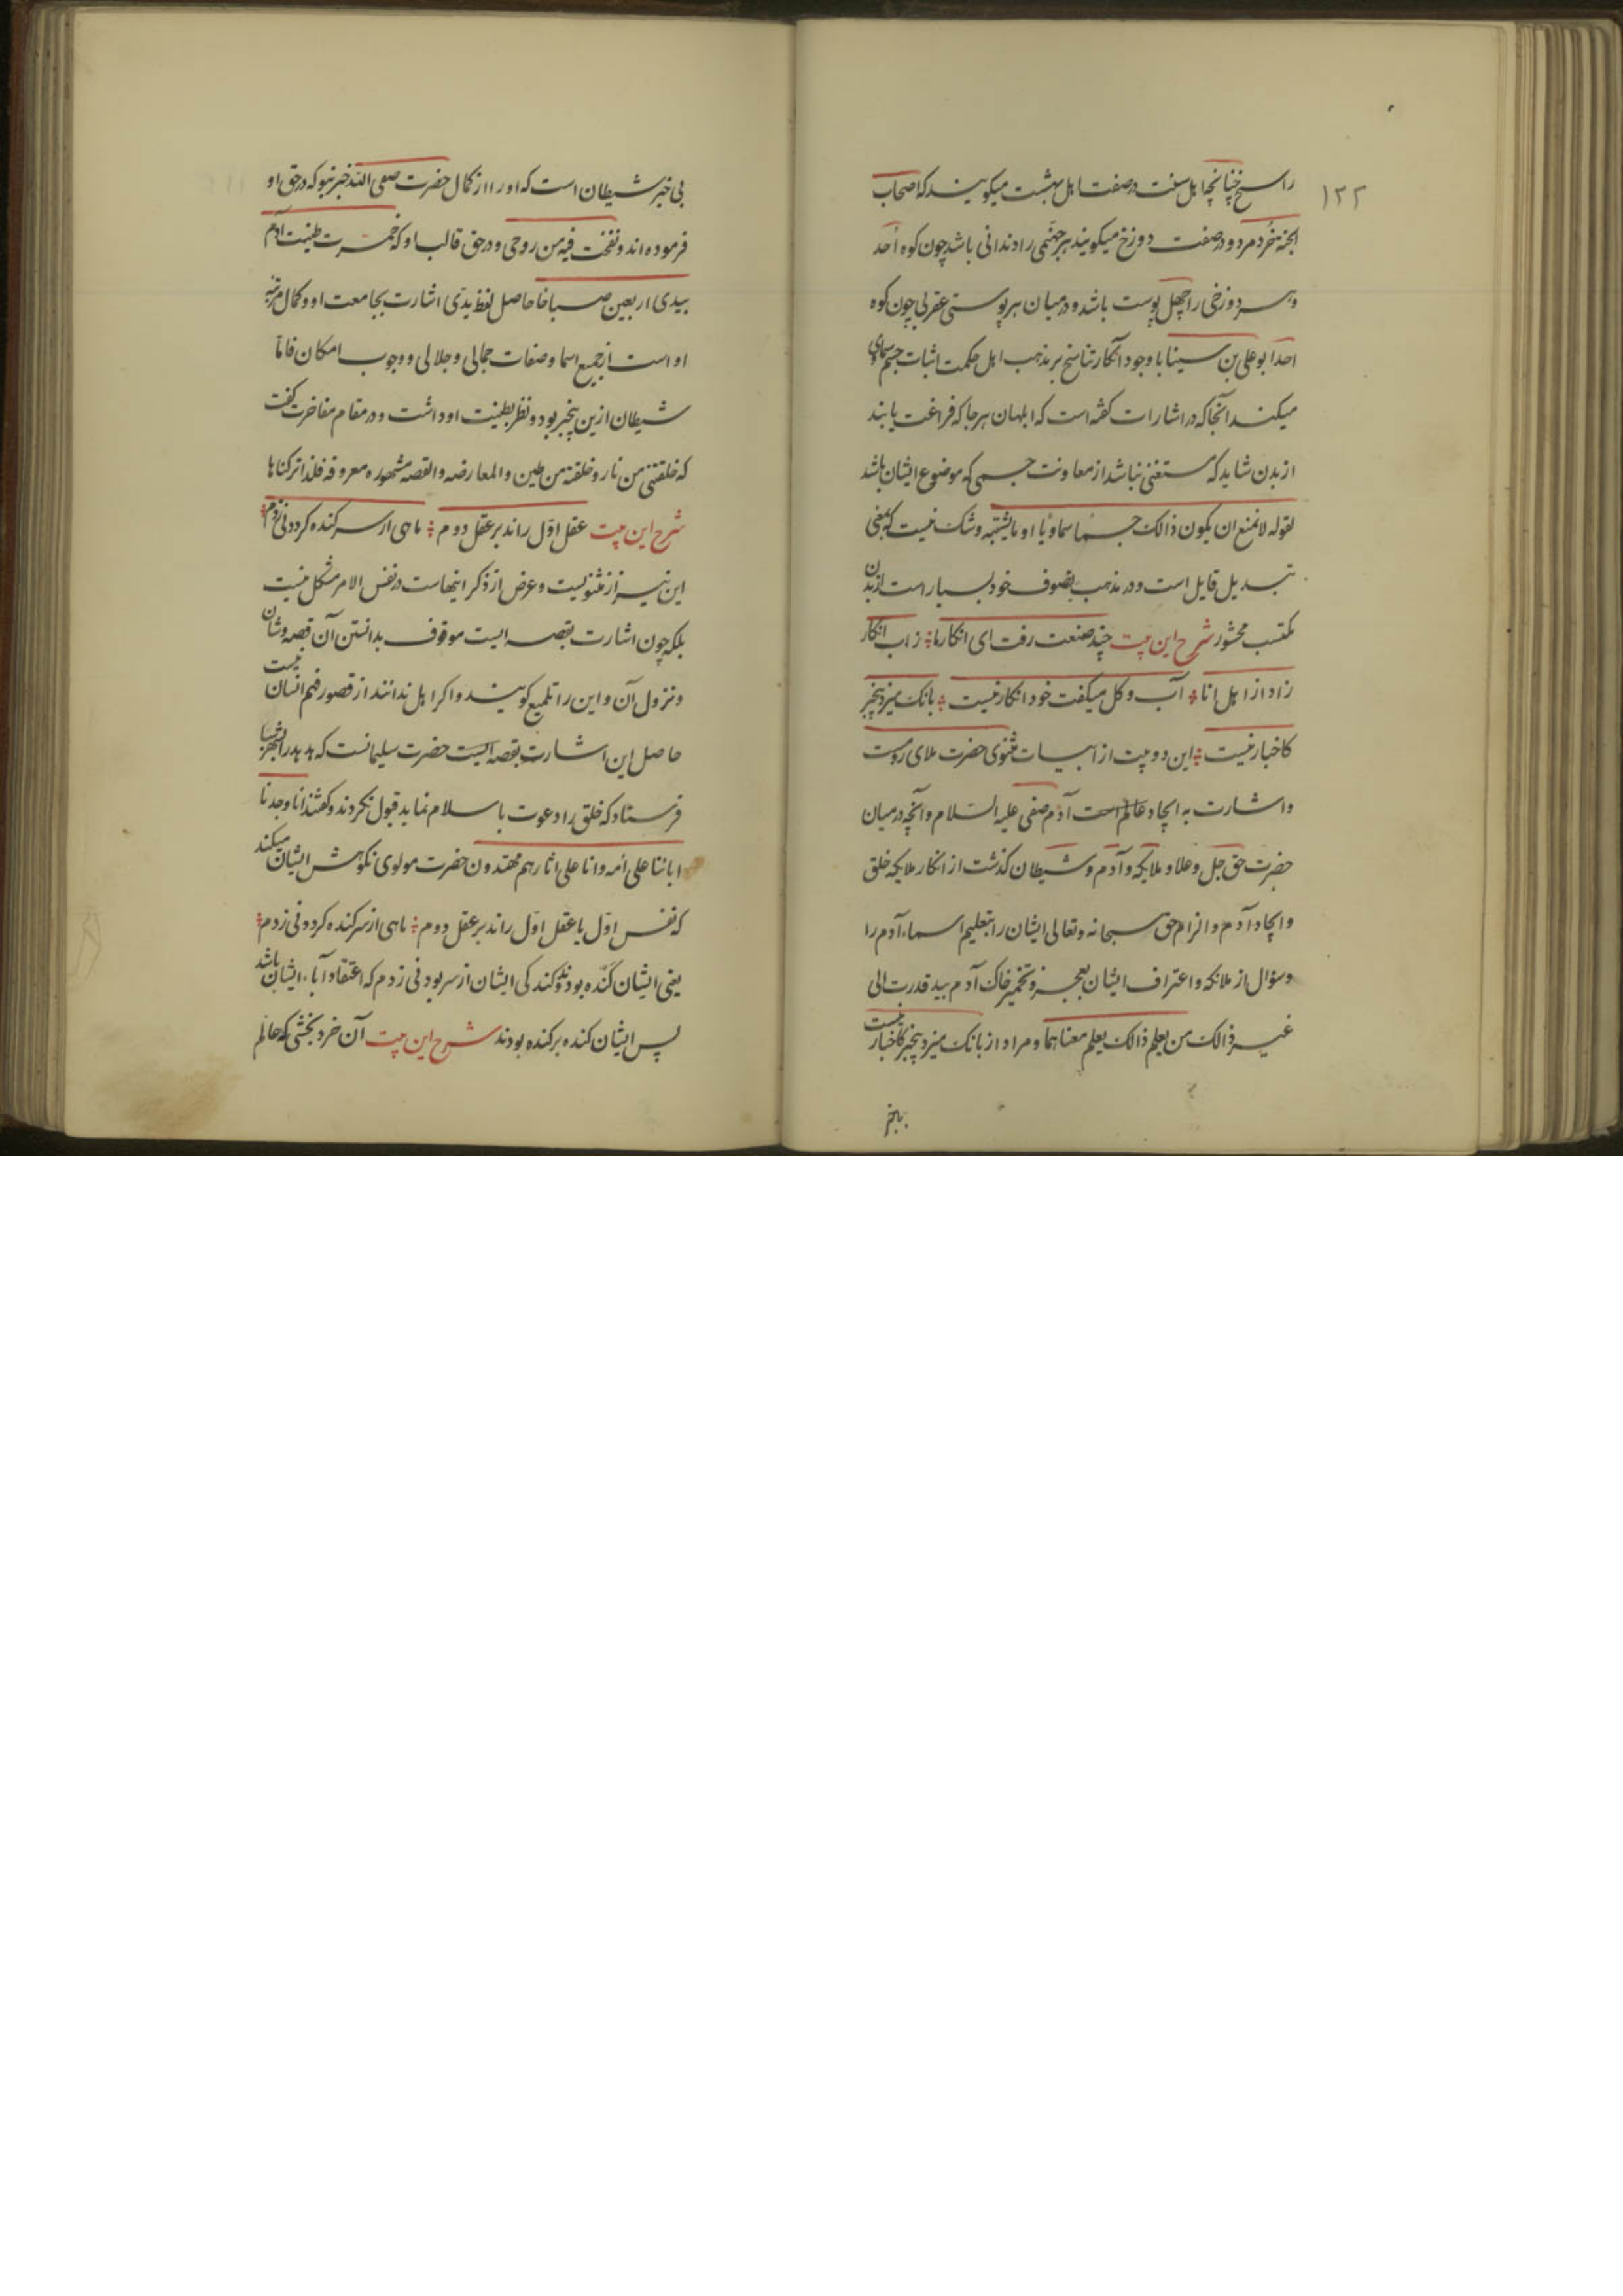 ۱۲۲
راسخ چنانچه اهل سنت در صفت اهل بهشت میکویند که اصحاب
الجنه جُرد مرد و در صفت دوزخ میکویند هر جهنمی را دندانی باشد چون کوه اُحد
و هر دوزخی را چهل پوست باشد و در میان هر پوستی عقربی چون کوه
احد ابو علی بن سینا با وجود انکار تناسخ بر مذهب اهل حکمت اثبات جسم سماوی
میکند آنجا که در اشارات کفته است که ابلهان هر جا که فراغت یابند
از بدن شاید که مستغنی نباشد از معاونت جسمی که موضوع ایشان باشد
لقوله لا نمنع ان یکون ذالک جسما سماویا او ما یشتبه و شک نیست که بمعنی
تبدیل قایل است و در مذهب تصوف خود بسیار است از بدن
مکتسب محشور شرح این بیت چند صنعت رفت ای انکارها زاب انکار
زاد از اهل انا آب و کل میکفت خود انکار نیست بانک میزد بیخبر
کاخبار نیست این دو بیت از ابیات مثنوی حضرت ملای رومست
و اشارت به ایجاد عالم است آدم صفی علیه السلام و آنچه در میان
حضرت حق جل و علا و ملایکه و آدم و شیطان کذشت از انکار ملایکه خلق
و ایجاد آدم و الزام حق سبحانه و تعالی ایشان را بتعلیم اسماء آدم را
و سؤال از ملائکه و اعتراف ایشان بعجز و تخمیر خاک آدم بید قدرت الی
غیر ذالک من یعلم ذالک یعلم معناهما و مراد از بانک میزد بیخبر کاخبار نیست
بیخبر
بی خبر شیطان است که او را از کمال حضرت صفی الله خبر نبو که در حق او
فرموده اند و نفخت فیه من روحی و در حق قالب او که خمرت طینت آدم
بیدی اربعین صباحا حاصل لفظ یدی اشارت بجامعت او و کمال مرتبه
او است از جمیع اسما و صفات جمالی و جلالی و وجوب امکان فاما
شیطان ازین بیخبر بود و نظر بطینت او داشت و در مقام مفاخرت کفت
که خلقتنی من نار و خلقته من طین و المعارضه و القصه مشهوره معروفه فلذا ترکناها
شرح این بیت عقل اول راند بر عقل دوم ماهی از سر کنده کردد نی زدم
این نیز از مثنویست و غرض از ذکر اینهاست در نفس الامر مشکل نیست
بلکه چون اشارت بقصه ایست موقوف بدانستن آن قصه و شان
و نزول آن و این را تلمیع کویند و اکر اهل ندانند از قصور فهم انسان نیست
حاصل این اشارت بقصه ایست حضرت سلیمانست که هدهد را بشهر سبا
فرستاد که خلق را دعوت باسلام نماید قبول نکردند و کفتند انا وجدنا
اباننا علی امه و انا علی اثارهم مقتدون حضرت مولوی نکوهش ایشان میکند
که نفس اول یا عقل اول راند بر عقل دوم ماهی از سر کنده کردد نی زدم
یعنی ایشان کنده بودند و کندکی ایشان از سر بود نی زدم که اعتقاد آباء ایشان باشد
پس ایشان کنده بر کنده بودند شرح این بیت آن خرد بخشی که حالم